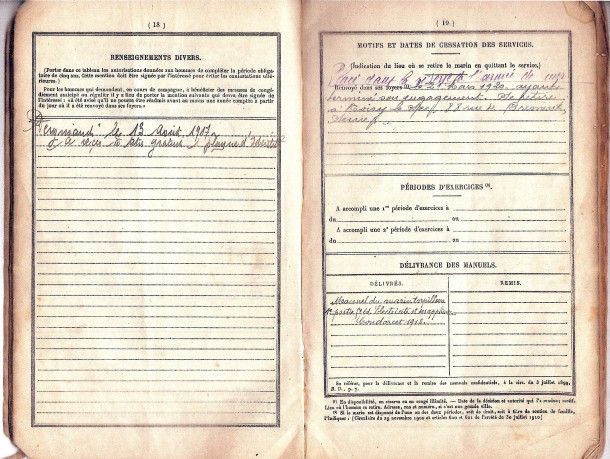 ( 18 )
RENSEIGNEMENTS DIVERS.
(Porter dans ce tableau les autorisations données aux hommes de compléter la période obliga-
toire de cinq ans. Cette mention doit être signée par l'intéressé pour éviter les contestations ulté-
rieures.)
Pour les hommes qui demandent, en cours de campagne, à bénéficier des mesures de con
dément anticipé ou régulier il y a lieu de porter les mentions suivantes qui devra être signée de
l'intéressé : a été avisé qu'il ne pourra être réadmis avant au moins une année comptée à partir
du jour où il a été renvoyé dans ses foyers.
le 13 Août 1917
A reçu à titre gratuit 1 plaque d'identité
( 19 )
MOTIFS ET DATES DE CESSATION DES SERVICES.
(Indication du lieu où se retire le marin en quittant le service.)
Placé dans la réserve de l'armée de mer
Renvoyé dans ses foyers le 21 Mars 1920 ayant
terminé son engagement. Se retire
à Noisy le Sec, 28 rue de
PÉRIODES D'EXERCICES (2).
A accompli une 1re période d'exercices à
du au
A accompli une 2e période d'exercices à
du au
DÉLIVRANCE DES MANUELS.
DÉLIVRÉS. REMIS.
Manuel du marin torpilleur
1re partie Electricité et
Condorcet 1912
Se référer, pour la délivrance et la remise des manuels confidentiels, à la circ. du 3 juillet 1899,
B. O., p. 7.
(1) En disponibilité, en réserve ou en congé illimité. — Date de la décision et autorité qui l'a rendue; motif.
Lieu où l'homme se retire. Adresse, rue et numéro, si c'est une grande ville.
(2) Si le marin est dispensé de l'une ou des deux périodes, soit de droit, soit à titre de soutien de famille,
l'indiquer : (Circulaire du 29 novembre 1900 et articles 610 et 611 de l'arrêté du 30 juillet 1910)